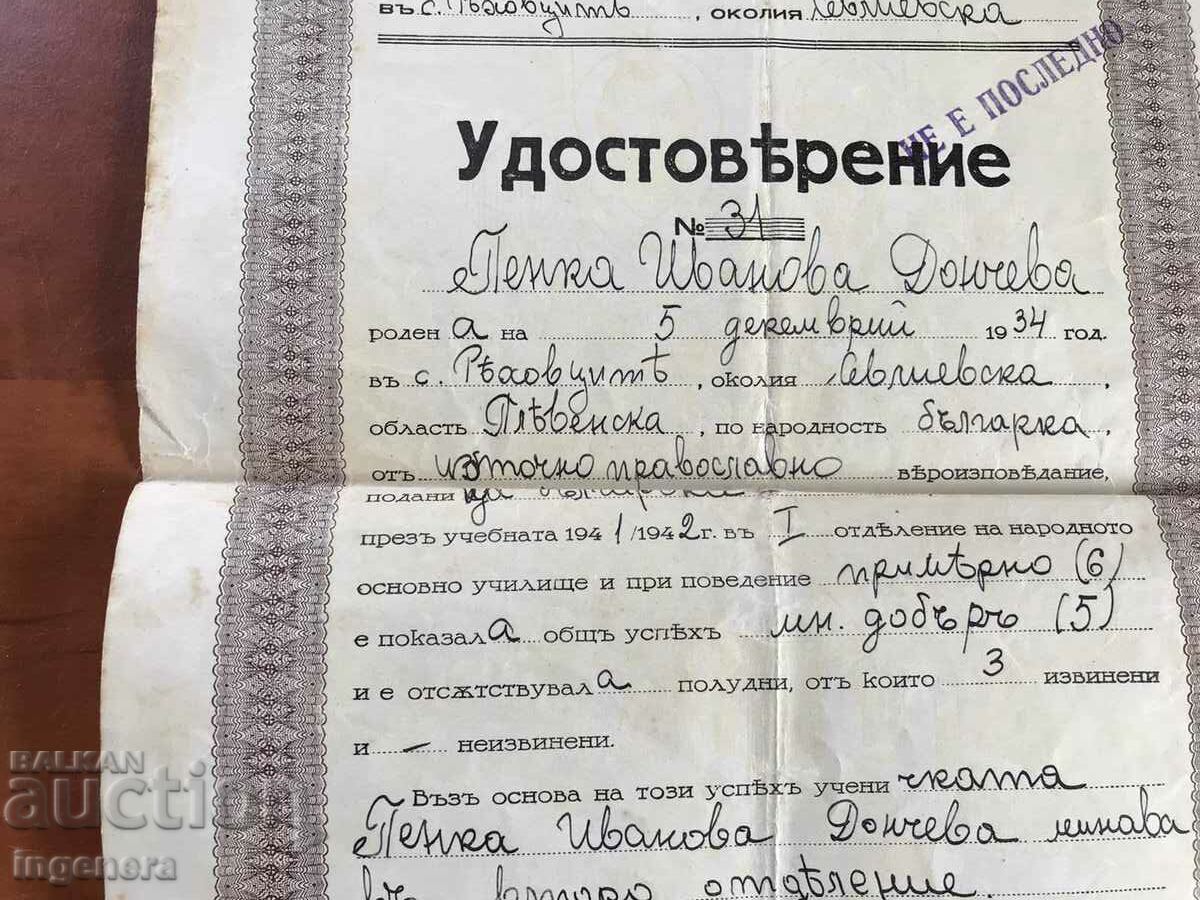 въ с. Рѣховцитѣ, околия Севлиевска
НЕ Е ПОСЛЕДНО
Удостовѣрение
№ 31
Пенка Иванова Дончева
родена на 5 декемврий 1934 год.
въ с. Рѣховцитѣ, околия Севлиевска,
область Плѣвенска, по народность българка,
отъ източно православно вѣроизповѣдание,
подани
презъ учебната 1941/1942 г. въ I отдѣление на народното
основно училище и при поведение примѣрно (6)
е показала общъ успѣхъ мн. добъръ (5)
и е отсѫтствувала полудни, отъ които 3 извинени
и – неизвинени.
Възъ основа на този успѣхъ ученичката
Пенка Иванова Дончева минава
въ второ отдѣление.
BALKAN
auction
ingenera